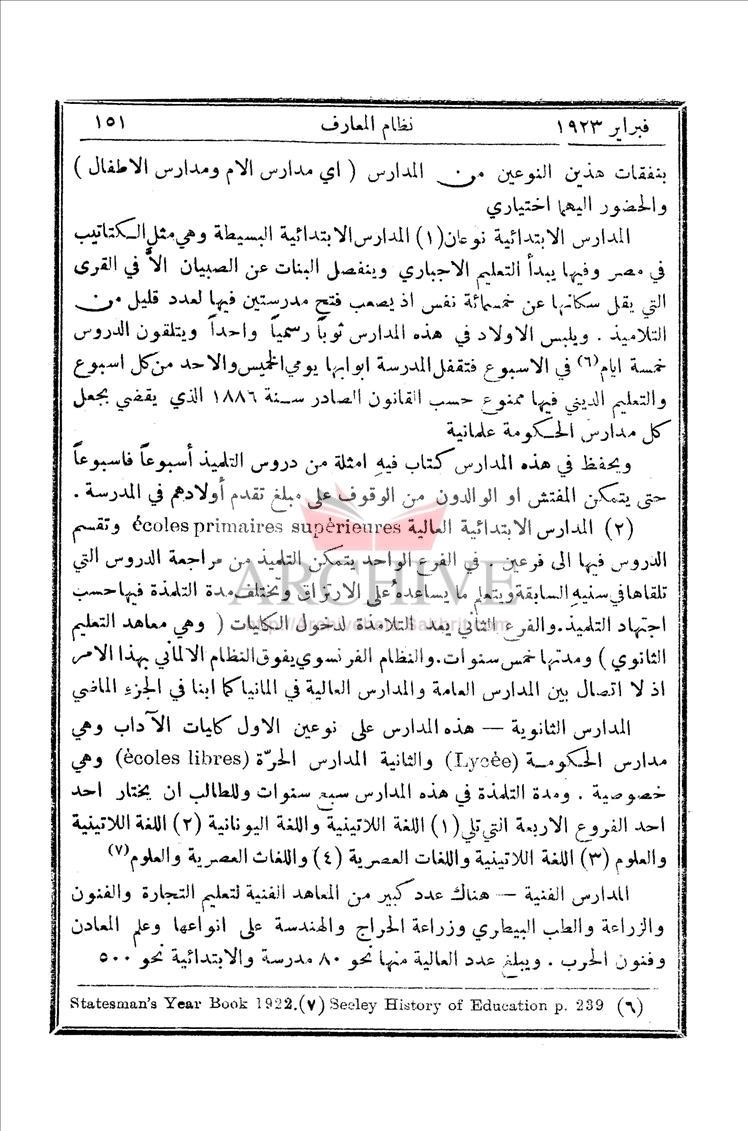 فبراير ١٩٢٣ نظام المعارف ١٥١
بنفقات هذين النوعين من المدارس ( اي مدارس الام ومدارس الاطفال )
والحضور اليهما اختياري
المدارس الابتدائية نوعان (١) المدارس الابتدائية البسيطة وهي مثل الكتاتيب
في مصر وفيها يبدأ التعليم الاجباري وينفصل البنات عن الصبيان الاَّ في القرى
التي يقل سكانها عن خمسمائة نفس اذ يصعب فتح مدرستين فيها لعدد قليل من
التلاميذ . ويلبس الاولاد في هذه المدارس ثوباً رسمياً واحداً ويتلقون الدروس
خمسة ايام(٦) في الاسبوع فتقفل المدرسة ابوابها يومي الخميس والاحد من كل اسبوع
والتعليم الديني فيها ممنوع حسب القانون الصادر سنة ١٨٨٦ الذي يقضي بجعل
كل مدارس الحكومة علمانية
ويحفظ في هذه المدارس كتاب فيهِ امثلة من دروس التلميذ أسبوعاً فاسبوعاً
حتى يتمكن المفتش او الوالدون من الوقوف على مبلغ تقدم أولادهم في المدرسة .
(٢) المدارس الابتدائية العالية écoles primaires supérieures وتقسم
الدروس فيها الى فرعين . في الفرع الواحد يتمكن التلميذ من مراجعة الدروس التي
تلقاها في سنيهِ السابقة ويتعلم ما يساعدهُ على الارتزاق وتختلف مدة التلمذة فيها حسب
اجتهاد التلميذ . والفرع الثاني يعد التلامذة لدخول الكليات ( وهي معاهد التعليم
الثانوي ) ومدتها خمس سنوات . والنظام الفرنسوي يفوق النظام الالماني بهذا الامر
اذ لا اتصال بين المدارس العامة والمدارس العالية في المانيا كما ابنا في الجزء الماضي
المدارس الثانوية — هذه المدارس على نوعين الاول كليات الآداب وهي
مدارس الحكومة (Lycée) والثانية المدارس الحرّة (écoles libres) وهي
خصوصية . ومدة التلمذة في هذه المدارس سبع سنوات وللطالب ان يختار احد
احد الفروع الاربعة التي تلي (١) اللغة اللاتينية واللغة اليونانية (٢) اللغة اللاتينية
والعلوم (٣) اللغة اللاتينية واللغات العصرية (٤) واللغات العصرية والعلوم(٧)
المدارس الفنية — هناك عدد كبير من المعاهد الفنية لتعليم التجارة والفنون
والزراعة والطب البيطري وزراعة الحراج والهندسة على انواعها وعلم المعادن
وفنون الحرب . ويبلغ عدد العالية منها نحو ٨٠ مدرسة والابتدائية نحو ٥٠٠
Statesman's Year Book 1922.(٧) Seeley History of Education p. 239 (٦)
ARCHIVE